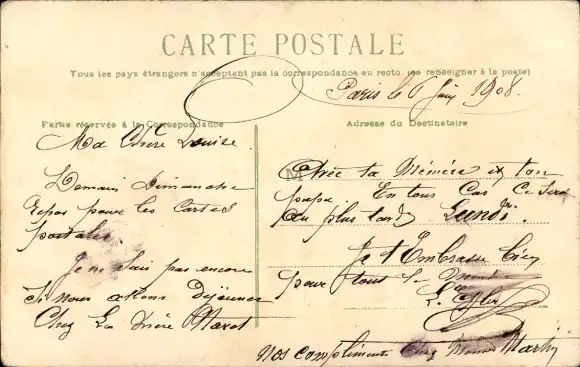 CARTE POSTALE
Tous les pays étrangers n'acceptant pas la correspondance au recto (se renseigner à la poste)
Paris le 6 Juin 1908.
Partie réservée à la Correspondance
Adresse du Destinataire
Ma Chère Louise.
Demain Dimanche
Repos pour les Cartes
postales.
Je ne sais pas encore
Si nous allons Déjeuner
Chez La Mère
M
Chez ta Mémère et ton
papa. En tous Cas Ce Sera
Au plus tard Lundi.
Je t'Embrasse bien
pour tous le monde
Nos compliments Chez